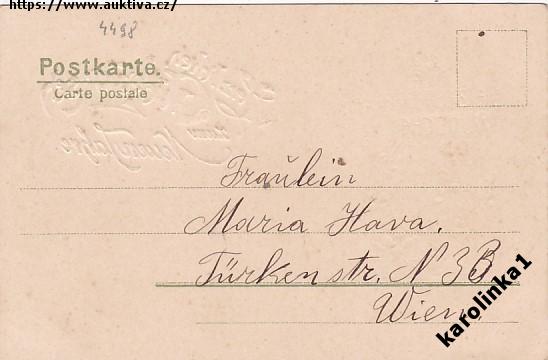 https://www.auktiva.cz/
4498
Postkarte.
Carte postale
zum
Neuen Jahre.
Fräulein
Maria Hava.
Türkenstr. N 3B
Wien.
karolinka1